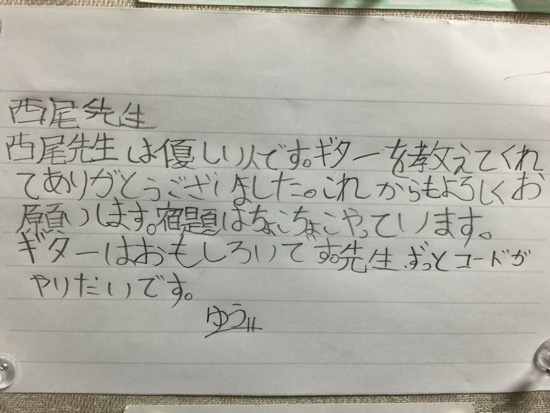 西尾先生
西尾先生は優しい人です。ギターを教えてくれ
てありがとうございました。これからもよろしくお
願いします。宿題はちょこちょこやっています。
ギターはおもしろいです。先生、ずっとコードが
やりたいです。
ゆう